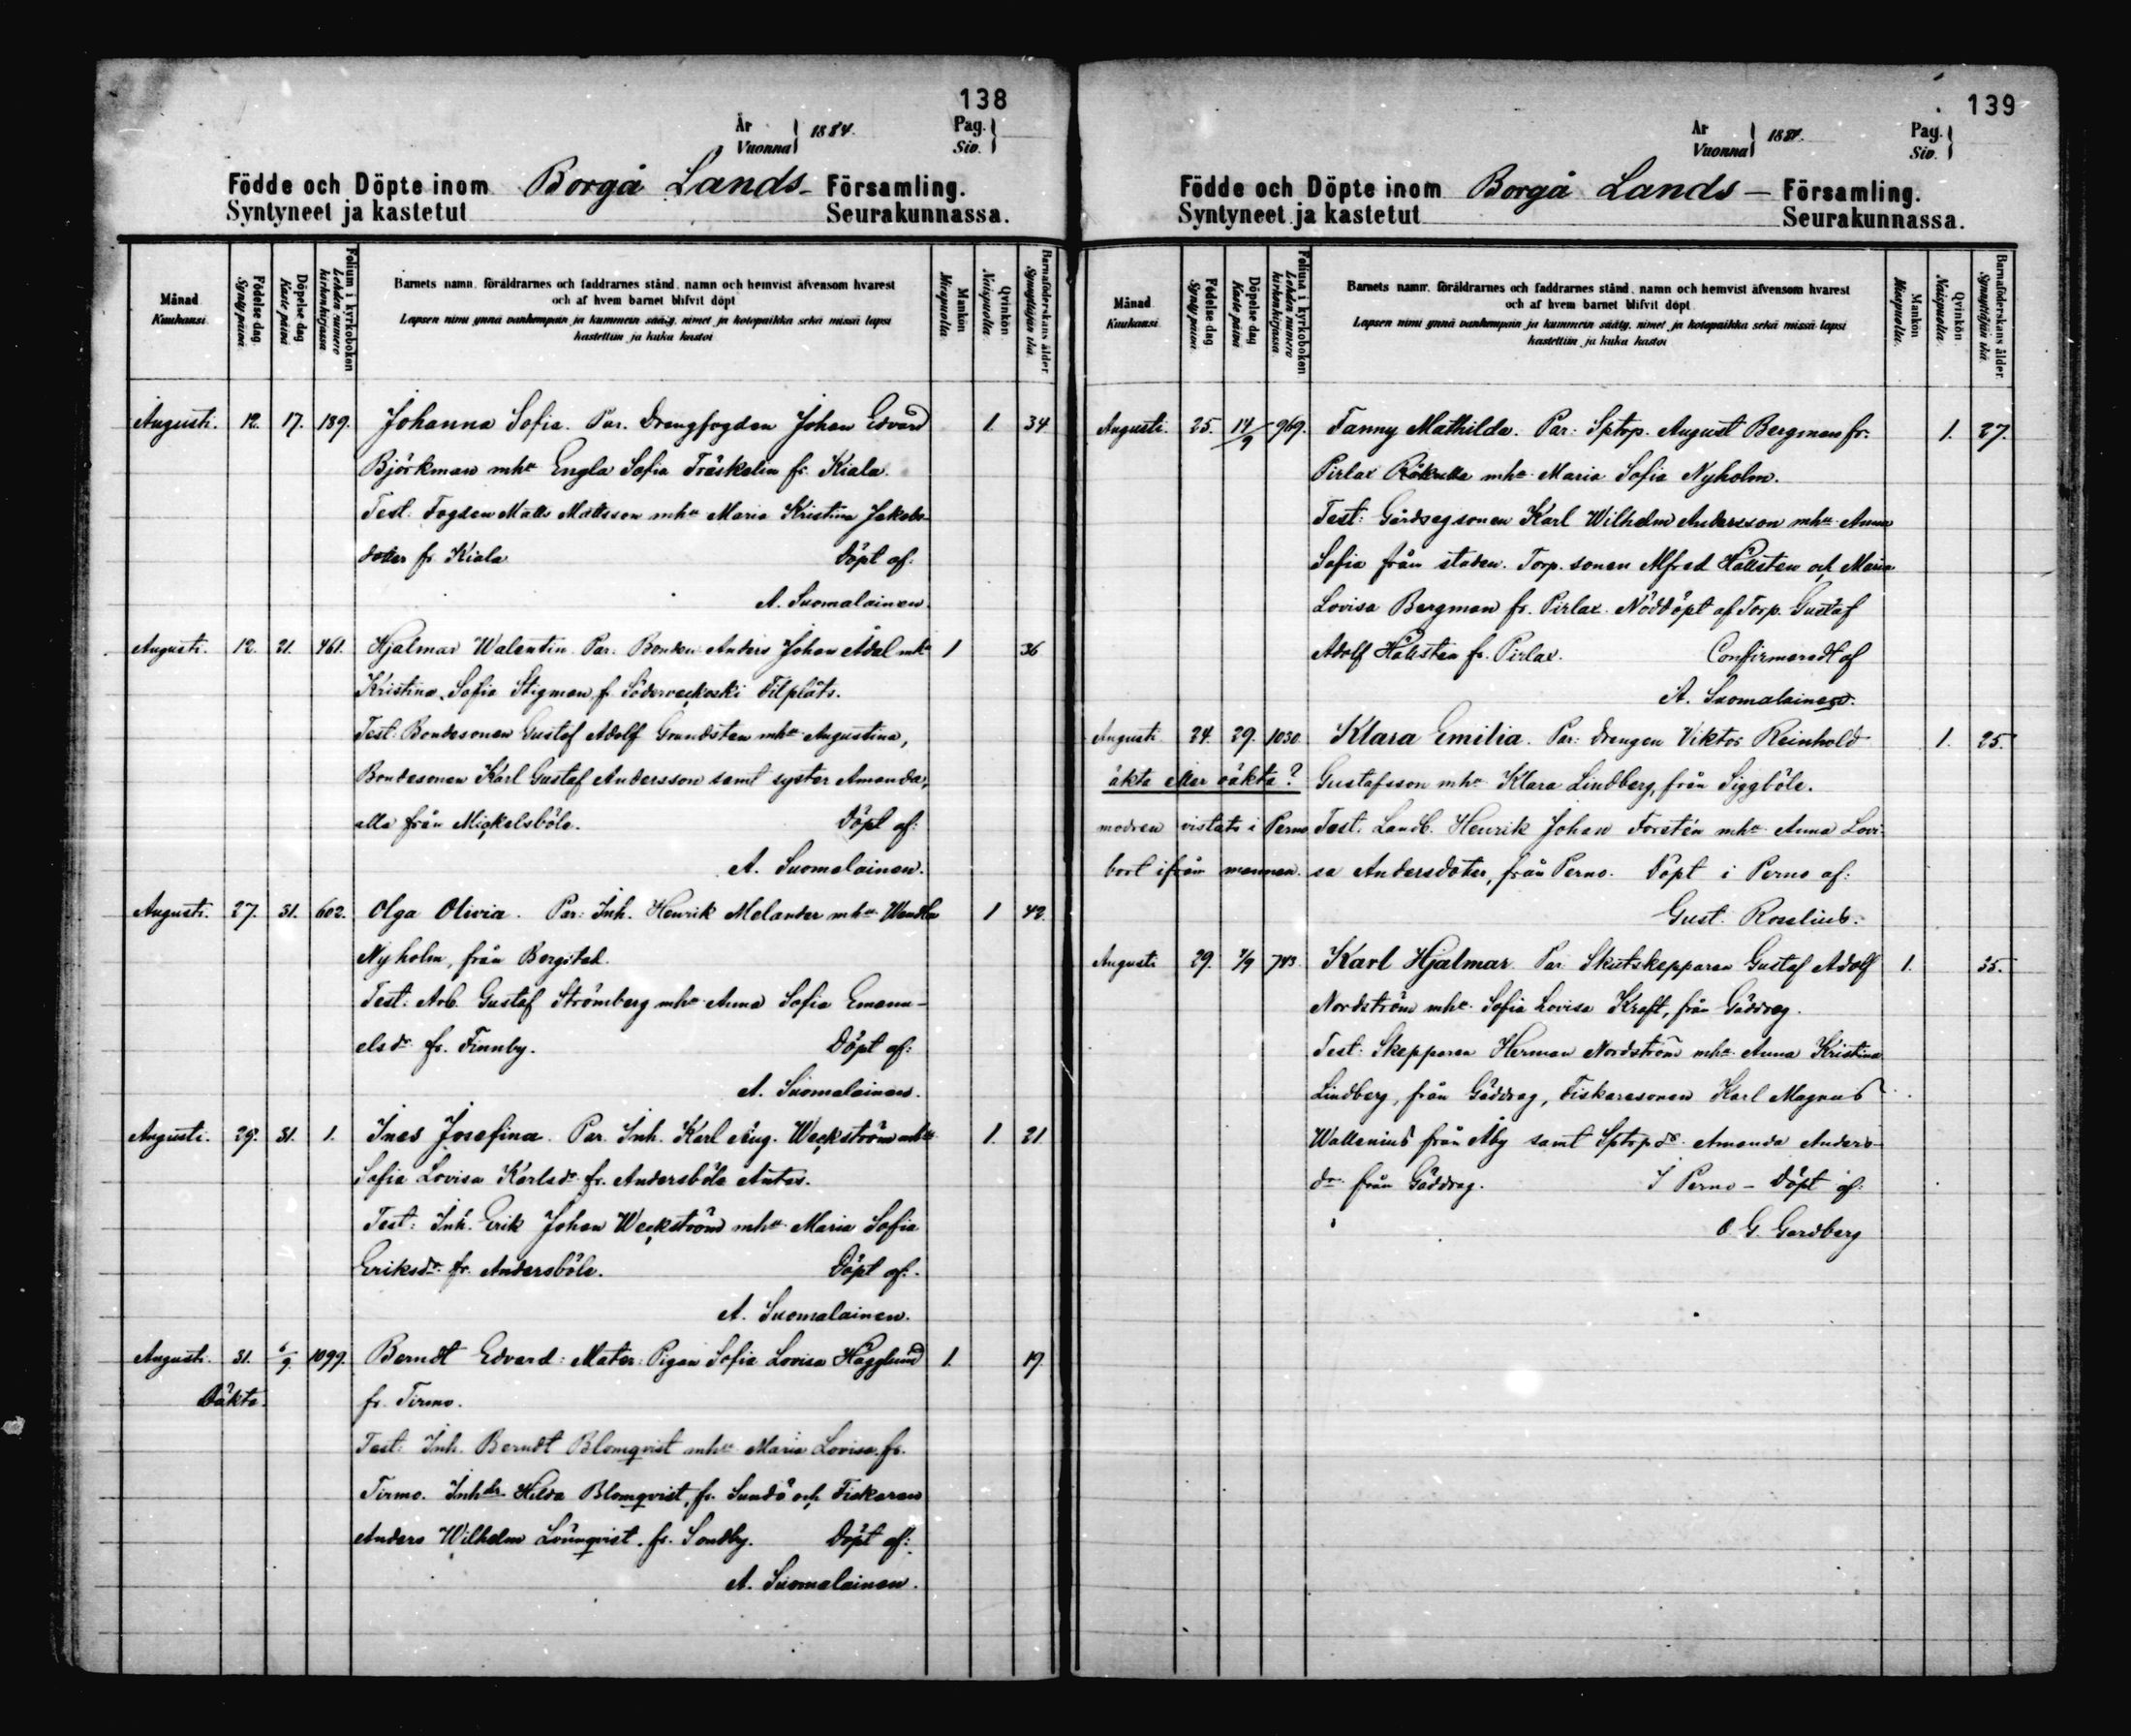 138
År
Vuonna } 1884.
Pag.
Siv. }
Födde och Döpte inom Borgå Lands- Församling.
Syntyneet ja kastetut Seurakunnassa.
Månad.
Kuukausi.
Födelse dag.
Synty päivä.
Döpelse dag
Kaste päivä
Folium i kyrkoboken
Lehden numero kirkonkirjassa
Barnets namn, föräldrarnes och faddrarnes stånd, namn och hemvist äfvensom hvarest
och af hvem barnet blifvit döpt
Lapsen nimi ynnä vanhempain ja kummein sääty, nimet ja kotopaikka sekä missä lapsi
kastettiin ja kuka kastoi
Mankön
Miespuolta.
Qvinkön
Naispuolta.
Barnaföderskans ålder.
Synnyttäjän ikä.
Augusti. 12. 17. 189. Johanna Sofia. Par. Drengfogden Johan Edvard 1. 34
Björkman mhu Engla Sofia Träskelin fr. Kiala.
Test. Fogden Matts Mattsson mhu Maria Kristina Jakobs-
dotter fr. Kiala Döpt af:
A. Suomalainen.
Augusti. 12. 21. 461. Hjalmar Walentin. Par. Bonden Anders Johan Ådal mhu 1 36
Kristina Sofia Stigman, f. Söderveckoski Filpläts.
Test. Bondesonen Gustaf Adolf Grundsten mhu Augustina,
Bondesonen Karl Gustaf Andersson samt syster Amanda,
alla från Mickelsböle. Döpt af:
A. Suomalainen.
Augusti. 27. 31. 602. Olga Olivia. Par: Inh. Henrik Melander mhu Wendla 1 42.
Nyholm, från Borgstad.
Test: Arb. Gustaf Strömberg mhu Anna Sofia Emanu-
elsdr fr. Finnby. Döpt af:
A. Suomalainen.
Augusti. 29. 31. 1. Ines Josefina. Par. Inh. Karl Aug. Weckström mhu 1. 21.
Sofia Lovisa Karlsdr fr. Andersböle Anters.
Test: Inh. Erik Johan Weckström mhu Maria Sofia
Eriksdr fr. Andersböle. Döpt af:
A. Suomalainen.
Augusti. 31. 6/9. 1099. Berndt Edvard: Mater: Pigan Sofia Lovisa Hägglund 1. 19.
Oäkta. fr. Tirmo.
Test: Inh. Berndt Blomqvist mhu Maria Lovisa fr.
Tirmo. Inhdr Hilda Blomqvist, fr. Sundö och Fiskaren
Anders Wilhelm Lönnqvist fr. Sondby. Döpt af:
A. Suomalainen.
139
År
Vuonna } 1884.
Pag.
Siv. }
Födde och Döpte inom Borgå Lands- Församling.
Syntyneet ja kastetut Seurakunnassa.
Månad.
Kuukausi.
Födelse dag.
Synty päivä.
Döpelse dag
Kaste päivä
Folium i kyrkoboken
Lehden numero kirkonkirjassa
Barnets namn, föräldrarnes och faddrarnes stånd, namn och hemvist äfvensom hvarest
och af hvem barnet blifvit döpt.
Lapsen nimi ynnä vanhempain ja kummein sääty, nimet ja kotopaikka sekä missä lapsi
kastettiin ja kuka kastoi
Mankön
Miespuolta.
Qvinkön.
Naispuolta.
Barnaföderskans ålder.
Synnyttäjän ikä.
Augusti. 25. 14/9 969. Fanny Mathilda. Par: Sptrp. August Bergman fr. 1. 27.
Pirlax mhu Maria Sofia Nyholm.
Test: Gårdsegsonen Karl Wilhelm Andersson mhu Anna
Sofia från staden. Torp. sonen Alfred Hällsten och Maria
Lovisa Bergman fr. Pirlax. Nöddöpt af Torp. Gustaf
Adolf Hällsten fr. Pirlax. Confirmeradt af
A. Suomalainen.
Augusti 24. 29. 1030. Klara Emilia. Par: Drengen Viktor Reinhold 1. 25.
äkta eller oäkta? Gustafsson mhu Klara Lindberg, från Siggböle.
modren vistats i Perno Test. Landb. Henrik Johan Forstén mhu Anna Lovi-
bort ifrån mannen. sa Andersdoter, från Perno. Döpt i Perno af:
Gust. Roselius.
Augusti 29. 7/9 743. Karl Hjalmar. Par Skutskepparen Gustaf Adolf 1. 35.
Nordström mhu Sofia Lovisa Kraft, från Gäddrag.
Test: Skepparen Herman Nordström mhu Anna Kristina
Lindberg, från Gäddrag, Fiskaresonen Karl Magnus
Wallenius från Åby samt Sptrpdr Amanda Anders-
dr från Gäddrag. I Perno - Döpt af:
O. G. Gardberg